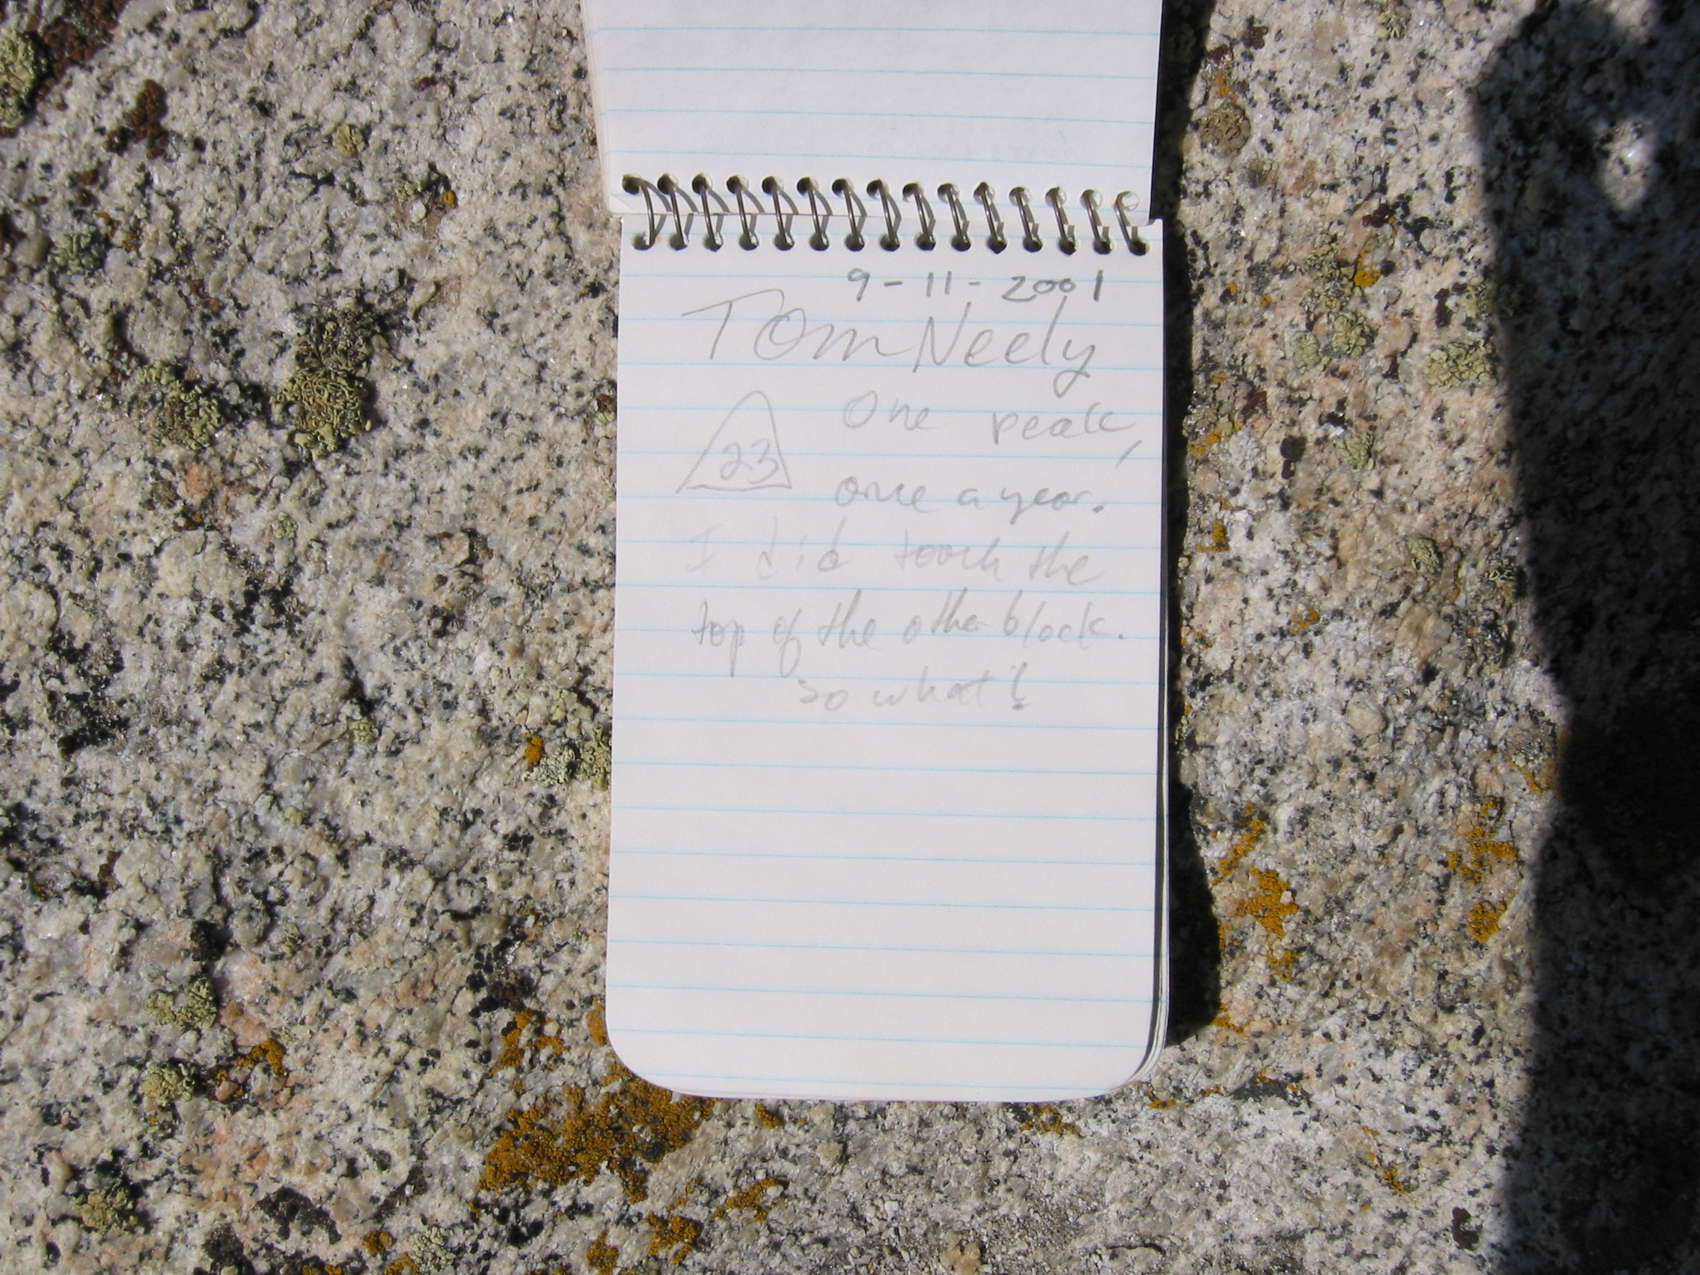 9-11-2001
Tom Neely
One peak,
23
once a year.
I did touch the
top of the other block.
so what!